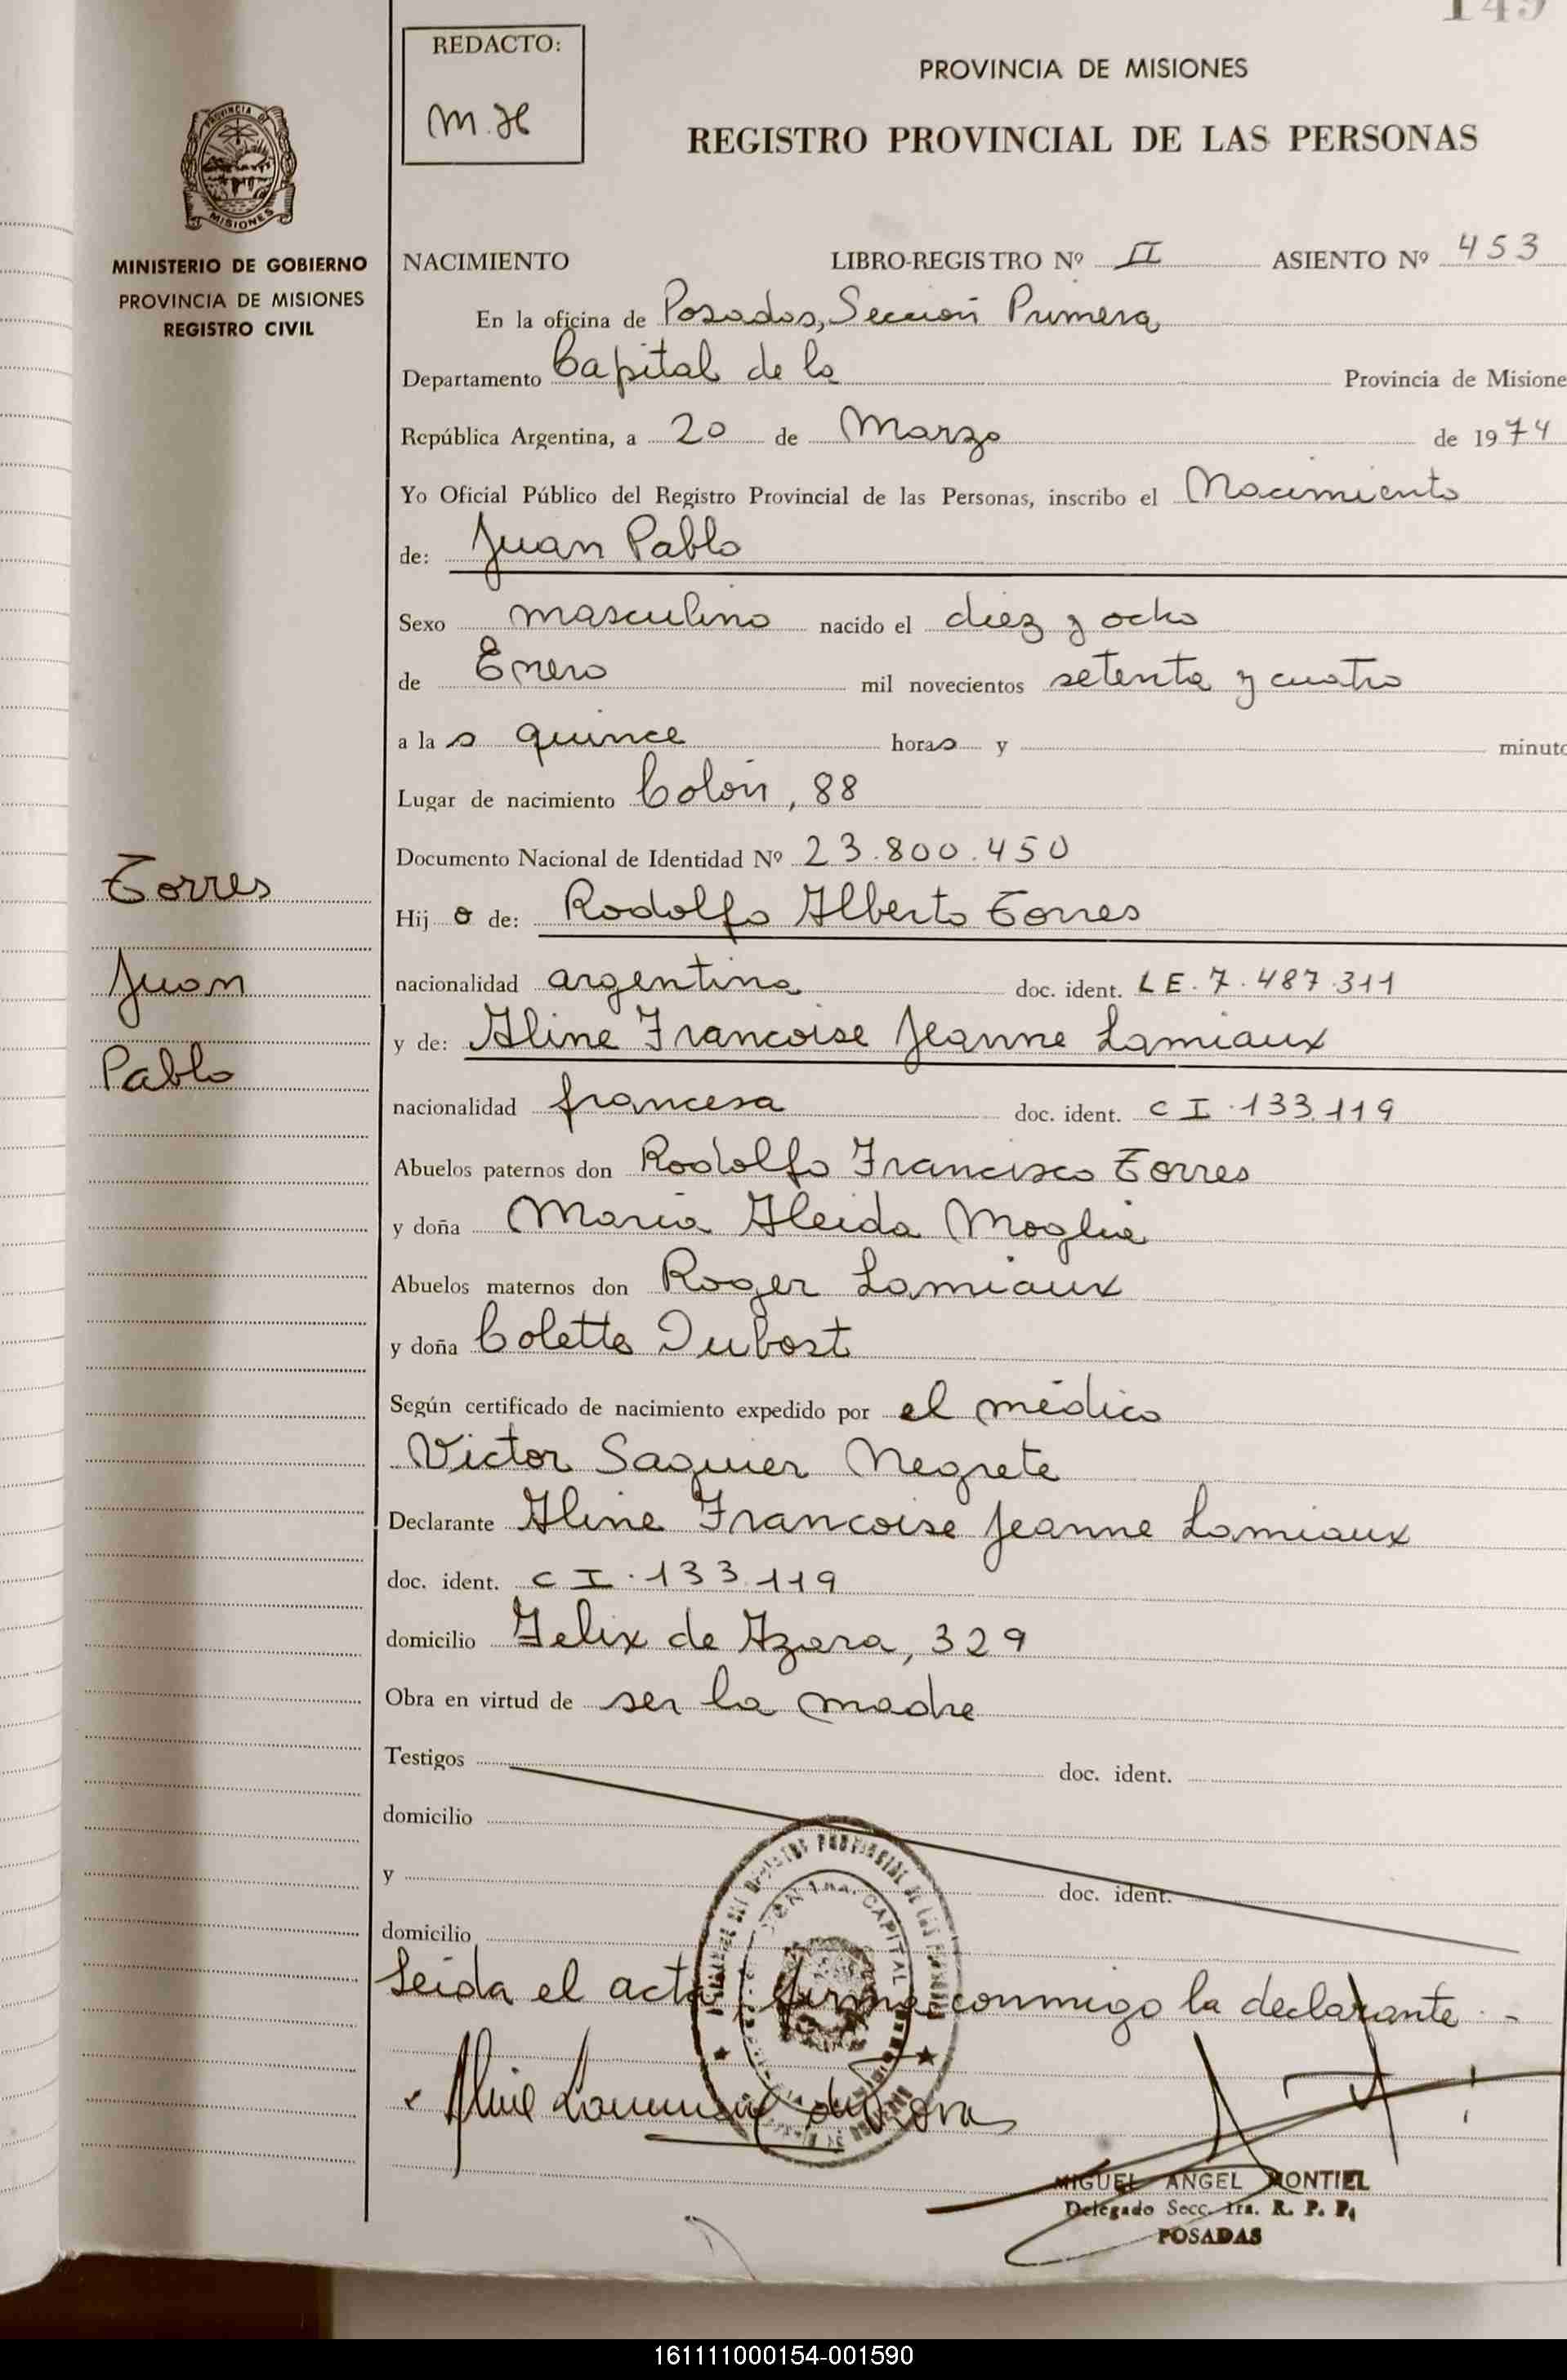 149
REDACTO:
M.H
PROVINCIA DE MISIONES
REGISTRO PROVINCIAL DE LAS PERSONAS
PROVINCIA D
MISIONES
MINISTERIO DE GOBIERNO
PROVINCIA DE MISIONES
REGISTRO CIVIL
NACIMIENTO LIBRO-REGISTRO Nº II ASIENTO Nº 453
En la oficina de Posadas, Sección Primera
Departamento Capital de la Provincia de Misione
República Argentina, a 20 de Marzo de 1974
Yo Oficial Público del Registro Provincial de las Personas, inscribo el Nacimiento
de: Juan Pablo
Sexo masculino nacido el diez y ocho
de Enero mil novecientos setenta y cuatro
a las quince horas y minuto
Lugar de nacimiento Colón, 88
Documento Nacional de Identidad Nº 23.800.450
Torres
Juan
Pablo
Hijo de: Rodolfo Alberto Torres
nacionalidad argentina doc. ident. LE. 7.487.311
y de: Aline Francoise Jeanne Lamiaux
nacionalidad francesa doc. ident. CI.133.119
Abuelos paternos don Rodolfo Francisco Torres
y doña Maria Aleida Moglia
Abuelos maternos don Roger Lamiaux
y doña Colette Dubost
Según certificado de nacimiento expedido por el médico
Victor Saguier Negrete
Declarante Aline Francoise Jeanne Lamiaux
doc. ident. CI.133.119
domicilio Felix de Azara, 329
Obra en virtud de ser la madre
Testigos doc. ident.
domicilio
y doc. ident.
domicilio
Leida el acta, firma conmigo la declarante.-
CAPITAL
Aline Lamiaux de Torres
MIGUEL ANGEL MONTIEL
Delegado Secc. 1ra. R. P. P.
POSADAS
161111000154-001590